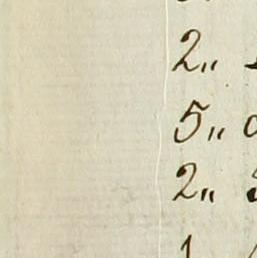 2„
5„
2„
1